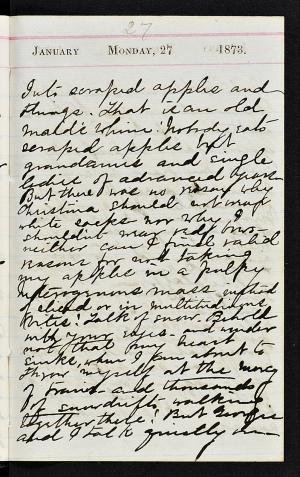 27
January Monday, 27 1873.
Into scraped apples and
things. That is an old
maid's whim. Nobody eats
scraped apples but
grandames and single
ladies of advanced years.
But there was no reason why
Christina should not wear
white socks nor why I
shouldn't wear red ones
neither can I find valid
reasons for not taking
my apples in a pulpy
mass instead
of sliced or in multitudinous
bits. Talk of snow. Behold
with your eyes and wonder
not that my heart
sinks, when I am about to
throw myself at the mercy
of trains and thousands
of snowdrifts walking
together there! But Georgie
and I talk quietly on